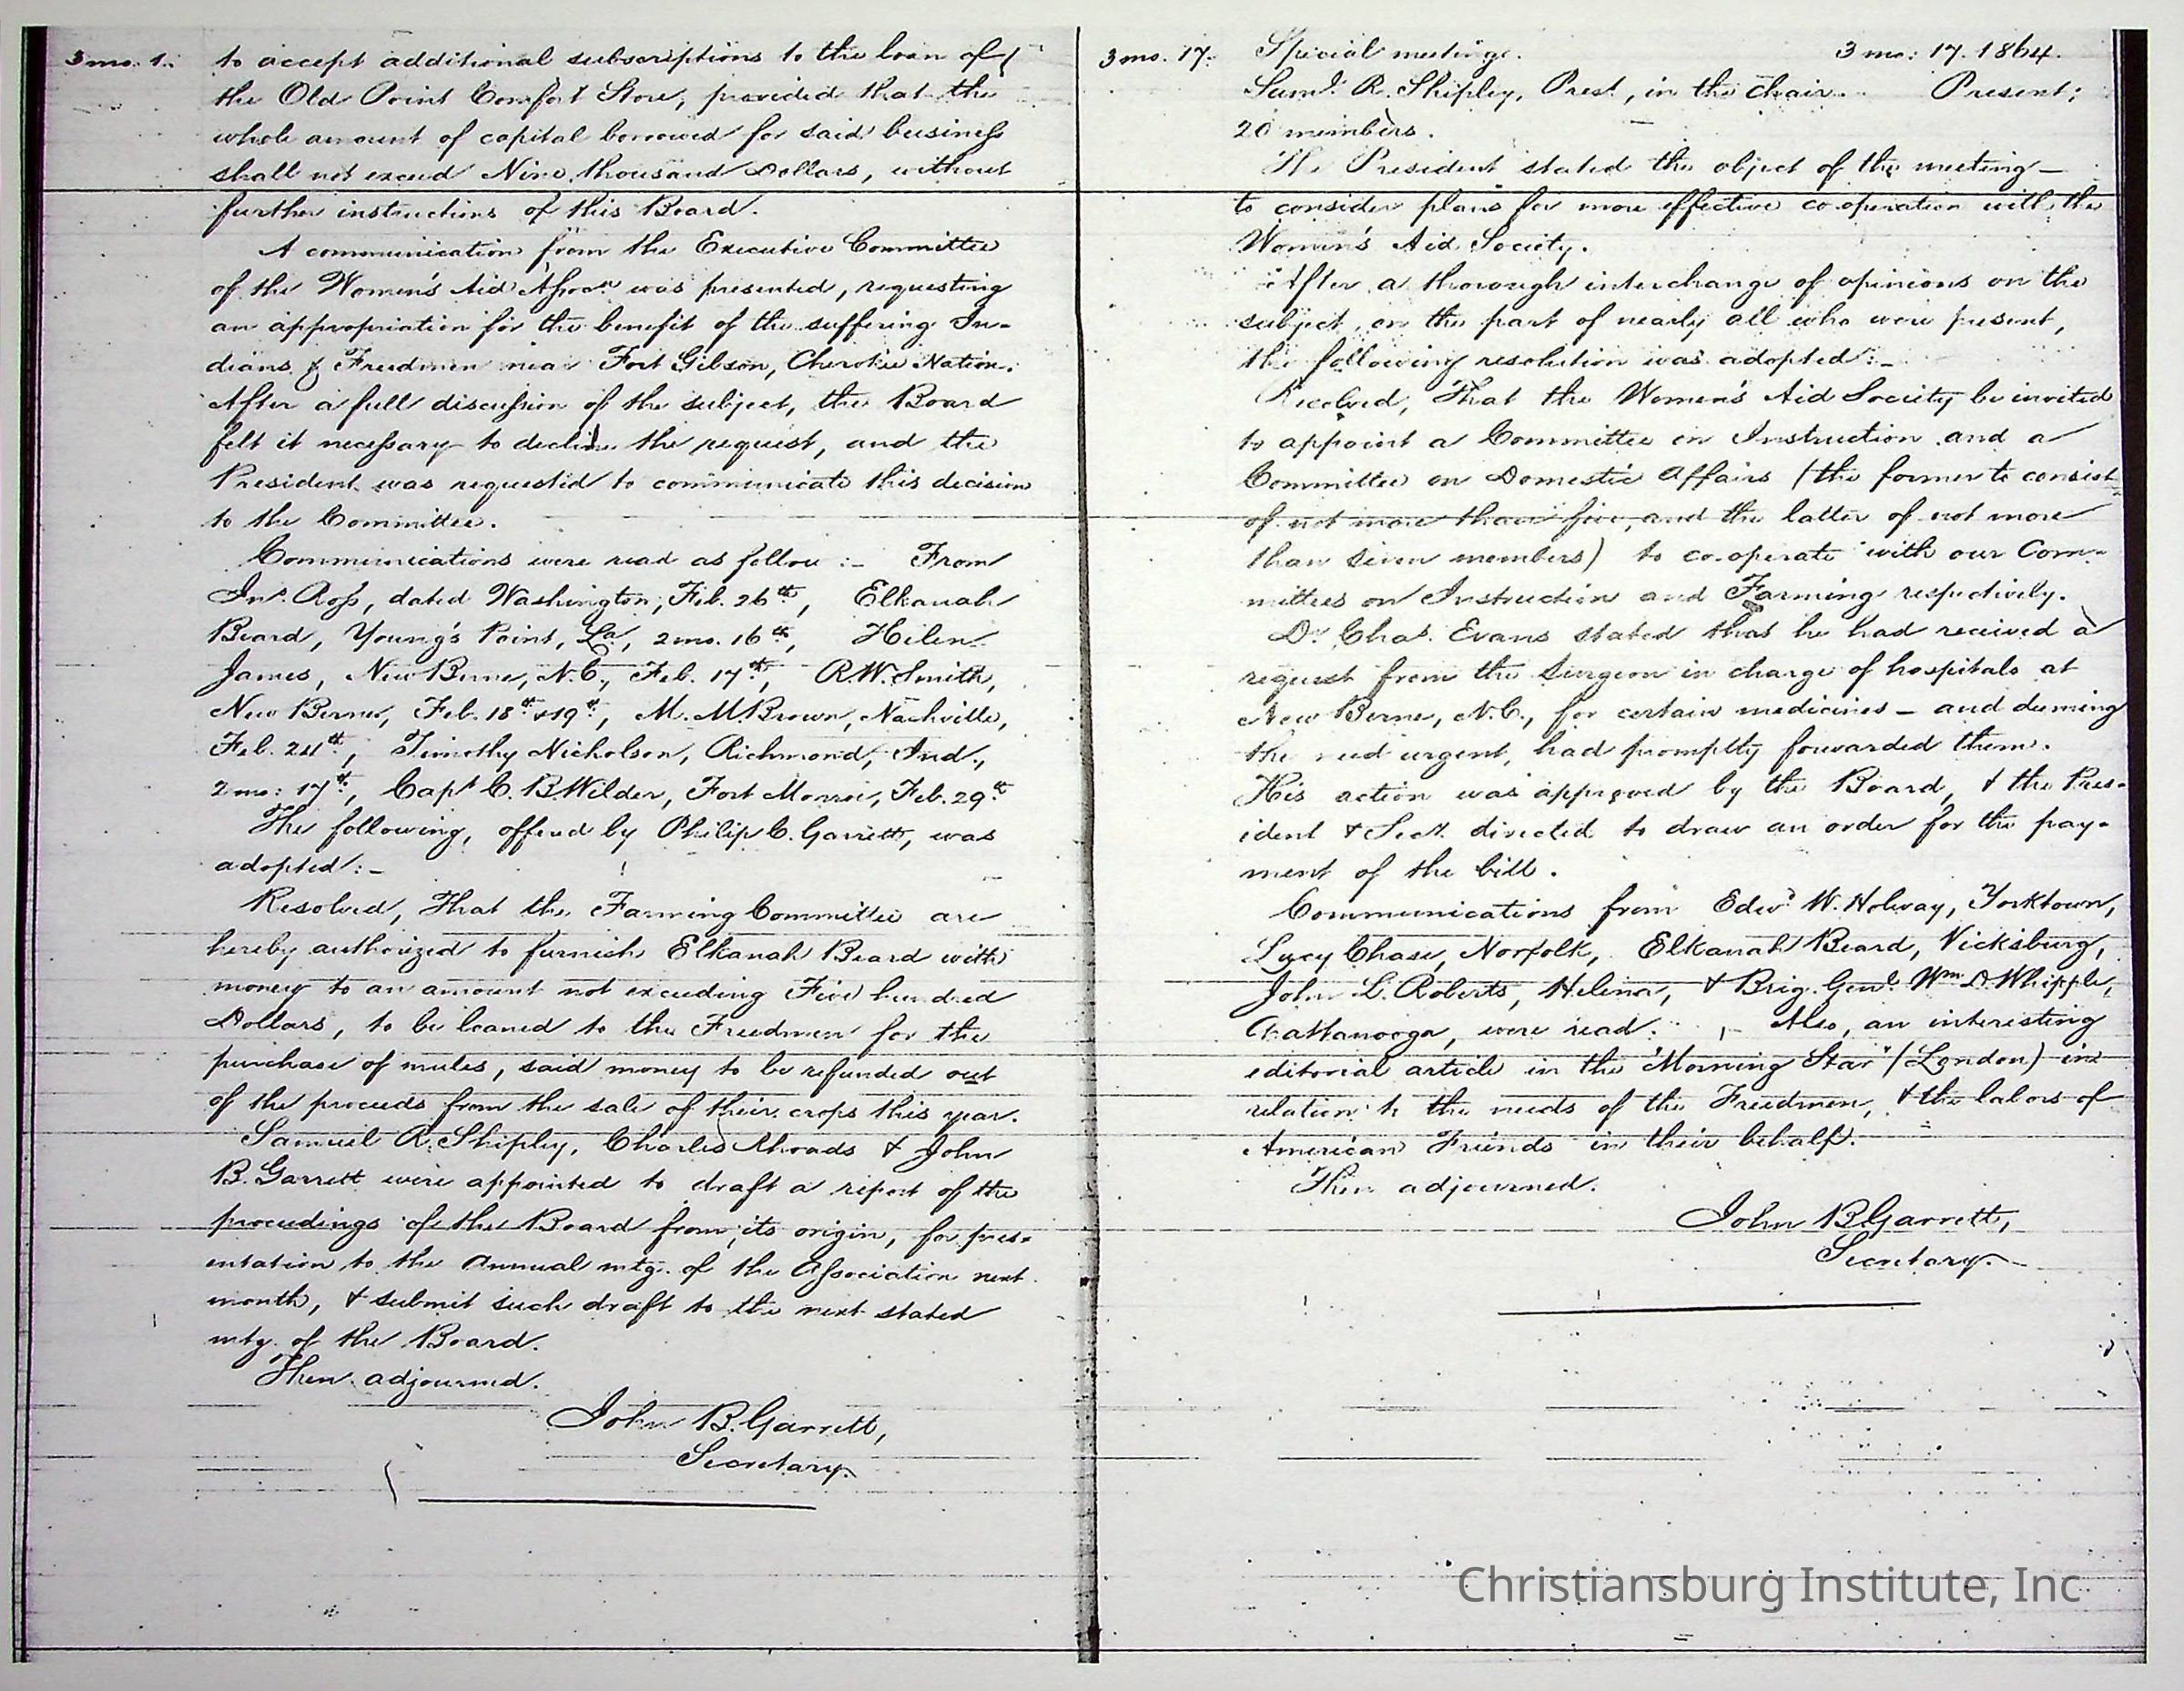 3 mo. 1.
to accept additional subscriptions to the loan of
the Old Point Comfort Store, provided that the
whole amount of capital borrowed for said business
shall not exceed Nine thousand Dollars, without
further instructions of this Board.
A communication from the Executive Committee
of the Women's Aid Assocn. was presented, requesting
an appropriation for the benefit of the suffering In-
dians & Freedmen near Fort Gibson, Cherokee Nation.
After a full discussion of the subject, the Board
felt it necessary to decline the request, and the
President was requested to communicate this decision
to the Committee.
Communications were read as follow :- From
Jno. Ross, dated Washington, Feb. 26th, Elkanah
Beard, Young's Point, La, 2 mo. 16th, Helen
James, New Berne, N.C., Feb. 17th, R.W. Smith,
New Berne, Feb. 18th & 19th, M. M. Brown, Nashville,
Feb. 24th, Timothy Nicholson, Richmond, Ind.,
2 mo: 17th, Capt C. B. Wilder, Fort Monroe, Feb. 29th
The following, offered by Philip C. Garrett, was
adopted :-
Resolved, That the Farming Committee are
hereby authorized to furnish Elkanah Beard with
money to an amount not exceeding Five hundred
Dollars, to be loaned to the Freedmen for the
purchase of mules, said money to be refunded out
of the proceeds from the sale of their crops this year.
Samuel R. Shipley, Charles Rhoads & John
B. Garrett were appointed to draft a report of the
proceedings of the Board from its origin, for pres-
entation to the Annual mtg. of the Association next
month, & submit such draft to the next stated
mtg. of the Board.
Then adjourned.
John B. Garrett,
Secretary.
3 mo. 17.
Special meeting. 3 mo: 17. 1864.
Saml. R. Shipley, Prest, in the chair. Present;
20 members.
The President stated the object of the meeting —
to consider plans for more effective co-operation with the
Women's Aid Society.
After a thorough interchange of opinions on the
subject, on the part of nearly all who were present,
the following resolution was adopted :-
Resolved, That the Women's Aid Society be invited
to appoint a Committee on Instruction and a
Committee on Domestic Affairs (the former to consist
of not more than five, and the latter of not more
than seven members) to co-operate with our Com-
mittees on Instruction and Farming respectively.
Dr. Chas. Evans stated that he had received a
request from the Surgeon in charge of hospitals at
New Berne, N.C., for certain medicines — and deeming
the need urgent, had promptly forwarded them.
His action was approved by the Board, & the Pres-
ident & Secy. directed to draw an order for the pay-
ment of the bill.
Communications from Edwd W. Holway, Yorktown,
Lucy Chase, Norfolk, Elkanah Beard, Vicksburg,
John L. Roberts, Helena, & Brig. Genl. Wm D. Whipple,
Chattanooga, were read. Also, an interesting
editorial article in the "Morning Star" (London) in
relation to the needs of the Freedmen, & the labors of
American Friends in their behalf.
Then adjourned.
John B. Garrett,
Secretary.
Christiansburg Institute, Inc